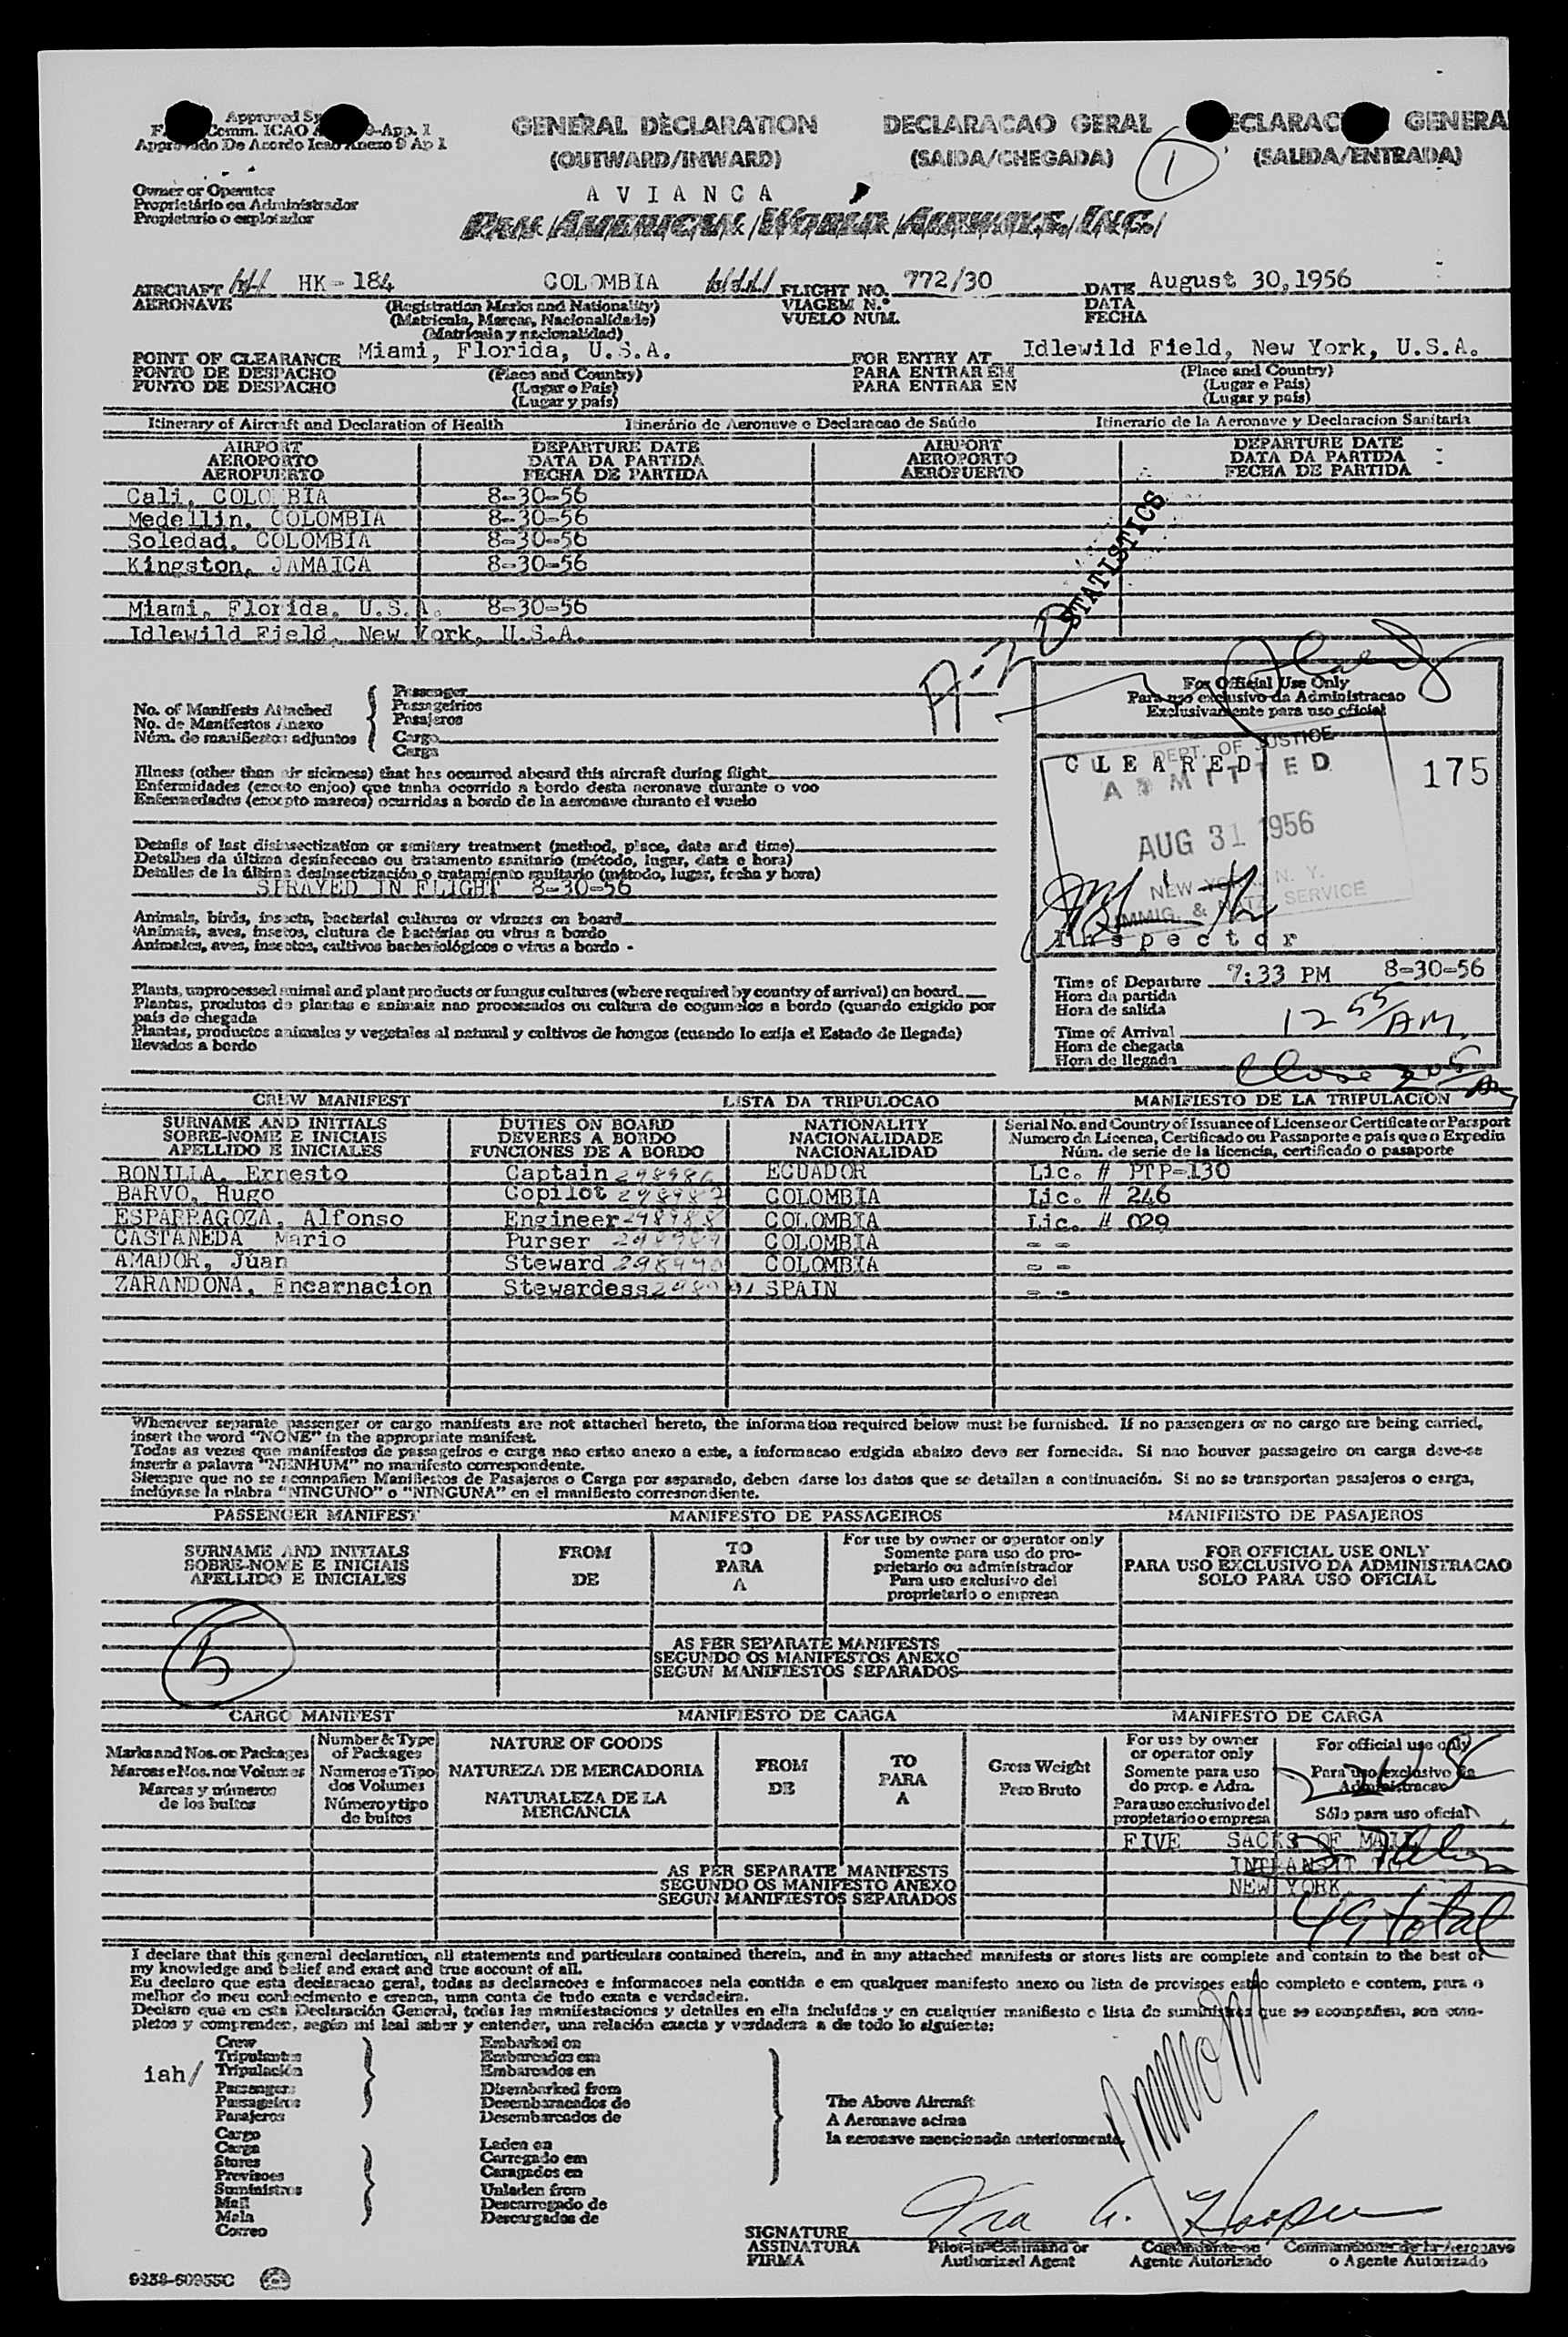 GENERAL DECLARATION DECLARACAO GERAL GENERAL
(OUTWARD/INWARD) (SAIDA/CHEGADA) (SALIDA/ENTRADA)
1
Approvado De Acordo Icao Anexo 9 Ap 1
Owner or Operator
Proprietário ou Administrador
Propietario o explotador
AVIANCA
PAN AMERICAN WORLD AIRWAYS, INC.
AIRCRAFT HK-184 COLOMBIA FLIGHT NO. 772/30 DATE August 30,1956
AERONAVE (Registration Marks and Nationality) VIAGEM N.° DATA
(Matricula, Marcas, Nacionalidade) VUELO NUM. FECHA
(Matrícula y nacionalidad)
POINT OF CLEARANCE Miami, Florida, U.S.A. FOR ENTRY AT Idlewild Field, New York, U.S.A.
PONTO DE DESPACHO (Place and Country) PARA ENTRAR EM (Place and Country)
PUNTO DE DESPACHO (Lugar e País) PARA ENTRAR EN (Lugar e País)
(Lugar y país) (Lugar y país)
Itinerary of Aircraft and Declaration of Health Itinerário de Aeronave e Declaracao de Saúde Itinerario de la Aeronave y Declaracion Sanitaria
AIRPORT DEPARTURE DATE AIRPORT DEPARTURE DATE
AEROPORTO DATA DA PARTIDA AEROPORTO DATA DA PARTIDA
AEROPUERTO FECHA DE PARTIDA AEROPUERTO FECHA DE PARTIDA
Cali, COLOMBIA 8-30-56
Medellin, COLOMBIA 8-30-56
Soledad, COLOMBIA 8-30-56
Kingston, JAMAICA 8-30-56
Miami, Florida, U.S.A. 8-30-56
Idlewild Field, New York, U.S.A.
STATISTICS
A-20
No. of Manifests Attached
No. de Manifestos Anexo
Núm. de manifiestos adjuntos
Passenger
Passageirios
Pasajeros
Cargo
Carga
For Official Use Only
Para uso exclusivo da Administracao
Exclusivamente para uso oficial
CLEARED 175
DEPT. OF JUSTICE
ADMITTED
AUG 31 1956
NEW YORK, N. Y.
IMMIG. & NATZ. SERVICE
Inspector
Illness (other than air sickness) that has occurred aboard this aircraft during flight
Enfermidades (exceto enjoo) que tenha ocorrido a bordo desta aeronave durante o voo
Enfermedades (excepto mareos) ocurridas a bordo de la aeronave durante el vuelo
Details of last disinsectization or sanitary treatment (method, place, date and time)
Detalhes da última desinfeccao ou tratamento sanitario (método, lugar, data e hora)
Detalles de la última desinsectización o tratamiento sanitario (método, lugar, fecha y hora)
SPRAYED IN FLIGHT 8-30-56
Animals, birds, insects, bacterial cultures or viruses on board
Animais, aves, insetos, clutura de bactérias ou vírus a bordo
Animales, aves, insectos, cultivos bacteriológicos o virus a bordo
Plants, unprocessed animal and plant products or fungus cultures (where required by country of arrival) on board
Plantas, produtos de plantas e animais nao processados ou cultura de cogumelos a bordo (quando exigido por
país de chegada
Plantas, productos animales y vegetales al natural y cultivos de hongos (cuando lo exija el Estado de llegada)
llevados a bordo
Time of Departure 7:33 PM 8-30-56
Hora da partida
Hora de salida
Time of Arrival 12 55 AM
Hora de chegada
Hora de llegada
Close 205
CREW MANIFEST LISTA DA TRIPULOCAO MANIFIESTO DE LA TRIPULACION
SURNAME AND INITIALS DUTIES ON BOARD NATIONALITY Serial No. and Country of Issuance of License or Certificate or Passport
SOBRE-NOME E INICIAIS DEVERES A BORDO NACIONALIDADE Numero da Licenca, Certificado ou Passaporte e país que o Expediu
APELLIDO E INICIALES FUNCIONES DE A BORDO NACIONALIDAD Núm. de serie de la licencia, certificado o pasaporte
BONILLA, Ernesto Captain 298986 ECUADOR Lic. # PTP-130
BARVO, Hugo Copilot 298987 COLOMBIA Lic. # 246
ESPARRAGOZA, Alfonso Engineer 298988 COLOMBIA Lic. # 029
CASTANEDA Mario Purser 298989 COLOMBIA - -
AMADOR, Juan Steward 298990 COLOMBIA - -
ZARANDONA, Encarnacion Stewardess 298991 SPAIN - -
Whenever separate passenger or cargo manifests are not attached hereto, the information required below must be furnished. If no passengers or no cargo are being carried,
insert the word "NONE" in the appropriate manifest.
Todas as vezes que manifestos de passageiros e carga nao estao anexo a este, a informacao exigida abaixo deve ser fornecida. Si nao houver passageiro ou carga deve-se
inserir a palavra "NENHUM" no manifesto correspondente.
Siempre que no se acompañen Manifiestos de Pasajeros o Carga por separado, deben darse los datos que se detallan a continuación. Si no se transportan pasajeros o carga,
inclúyase la plabra "NINGUNO" o "NINGUNA" en el manifiesto correspondiente.
PASSENGER MANIFEST MANIFESTO DE PASSAGEIROS MANIFIESTO DE PASAJEROS
SURNAME AND INITIALS FROM TO For use by owner or operator only FOR OFFICIAL USE ONLY
SOBRE-NOME E INICIAIS DE PARA Somente para uso do proprietario ou administrador PARA USO EXCLUSIVO DA ADMINISTRACAO
APELLIDO E INICIALES A Para uso exclusivo del proprietario o empresa SOLO PARA USO OFICIAL
5
AS PER SEPARATE MANIFESTS
SEGUNDO OS MANIFESTOS ANEXO
SEGUN MANIFIESTOS SEPARADOS
CARGO MANIFEST MANIFIESTO DE CARGA MANIFESTO DE CARGA
Marks and Nos. on Packages Number & Type of Packages NATURE OF GOODS FROM TO Gross Weight For use by owner or operator only For official use only
Marcas e Nos. nos Volumes Numeros e Tipo dos Volumes NATUREZA DE MERCADORIA DE PARA Peso Bruto Somente para uso do prop. e Adm. Para uso exclusivo da Administracao
Marcas y números de los bultos Número y tipo de bultos NATURALEZA DE LA MERCANCIA A Para uso exclusivo del propietario o empresa Sólo para uso oficial
FIVE SACKS OF MAIL
INTRANSIT TO
NEW YORK
49 total
AS PER SEPARATE MANIFESTS
SEGUNDO OS MANIFESTO ANEXO
SEGUN MANIFIESTOS SEPARADOS
I declare that this general declaration, all statements and particulars contained therein, and in any attached manifests or stores lists are complete and contain to the best of
my knowledge and belief and exact and true account of all.
Eu declaro que esta declaracao geral, todas as declaracoes e informacoes nela contida e em qualquer manifesto anexo ou lista de provisoes estao completo e contem, para o
melhor do meu conhecimento e crenca, uma conta de tudo exata e verdadeira.
Declaro que en esta Declaración General, todas las manifestaciones y detalles en ella incluídos y en cualquier manifiesto o lista de suministros que se acompañen, son completos y comprenden, según mi leal saber y entender, una relación exacta y verdadera a de todo lo siguiente:
iah/
Crew
Tripulantes
Tripulación
Passengers
Passageiros
Pasajeros
Cargo
Carga
Stores
Previsoes
Suministros
Mail
Mala
Correo
Embarked on
Embarcados em
Embarcados en
Disembarked from
Desembaracados de
Desembarcados de
Laden on
Carregado em
Caragados en
Unladen from
Descarregado de
Descargados de
The Above Aircraft
A Aeronave acima
la aeronave mencionada anteriormente.
SIGNATURE Ira G. Hooper
ASSINATURA Pilot-in-Command or Comandante ou
FIRMA Authorized Agent Agente Autorizado o Agente Autorizado
9238-60955C